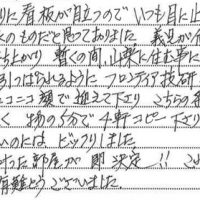 りに看板が目立つので いつも目に止
のものだと思っておりました 義兄が
ち上がり 暫くの間 山梨に住む事に
引っぱられるように フロンティア技研
ニコニコ顔で迎えて下さり こちらの
く 物の5分で 4軒コピー下さり
いのには ビックリしました
った部屋が 即 決定!!
有難とうございました